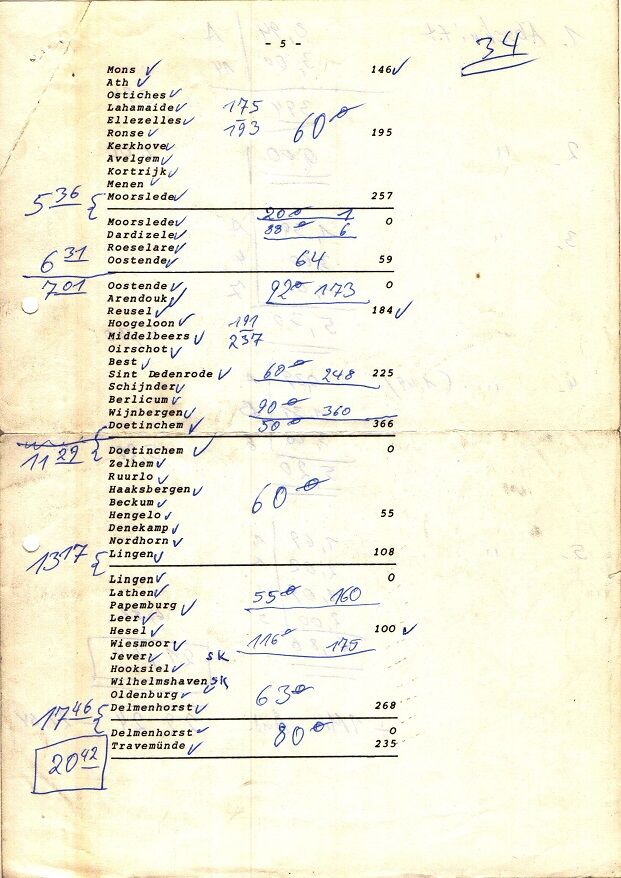 - 5 -
34
Mons 146
Ath
Ostiches
Lahamaide 175
Ellezelles 193 60
Ronse 195
Kerkhove
Avelgem
Kortrijk
Menen
Moorslede 257
5 36
Moorslede 20 1 0
Dardizele 88 6
Roeselare
Oostende 64 59
6 31
7 01
Oostende 92 173 0
Arendouk
Reusel 184
Hoogeloon 191
Middelbeers 237
Oirschot
Best
Sint Oedenrode 60 248 225
Schijnder
Berlicum
Wijnbergen 90 360
Doetinchem 50 366
11 29
Doetinchem 0
Zelhem
Ruurlo
Haaksbergen 60
Beckum
Hengelo 55
Denekamp
Nordhorn
Lingen 108
13 17
Lingen 0
Lathen 55 160
Papemburg
Leer
Hesel 100
Wiesmoor 116 175
Jever SK
Hooksiel
Wilhelmshaven SK
Oldenburg 63
Delmenhorst 268
17 46
Delmenhorst 80 0
Travemünde 235
20 42